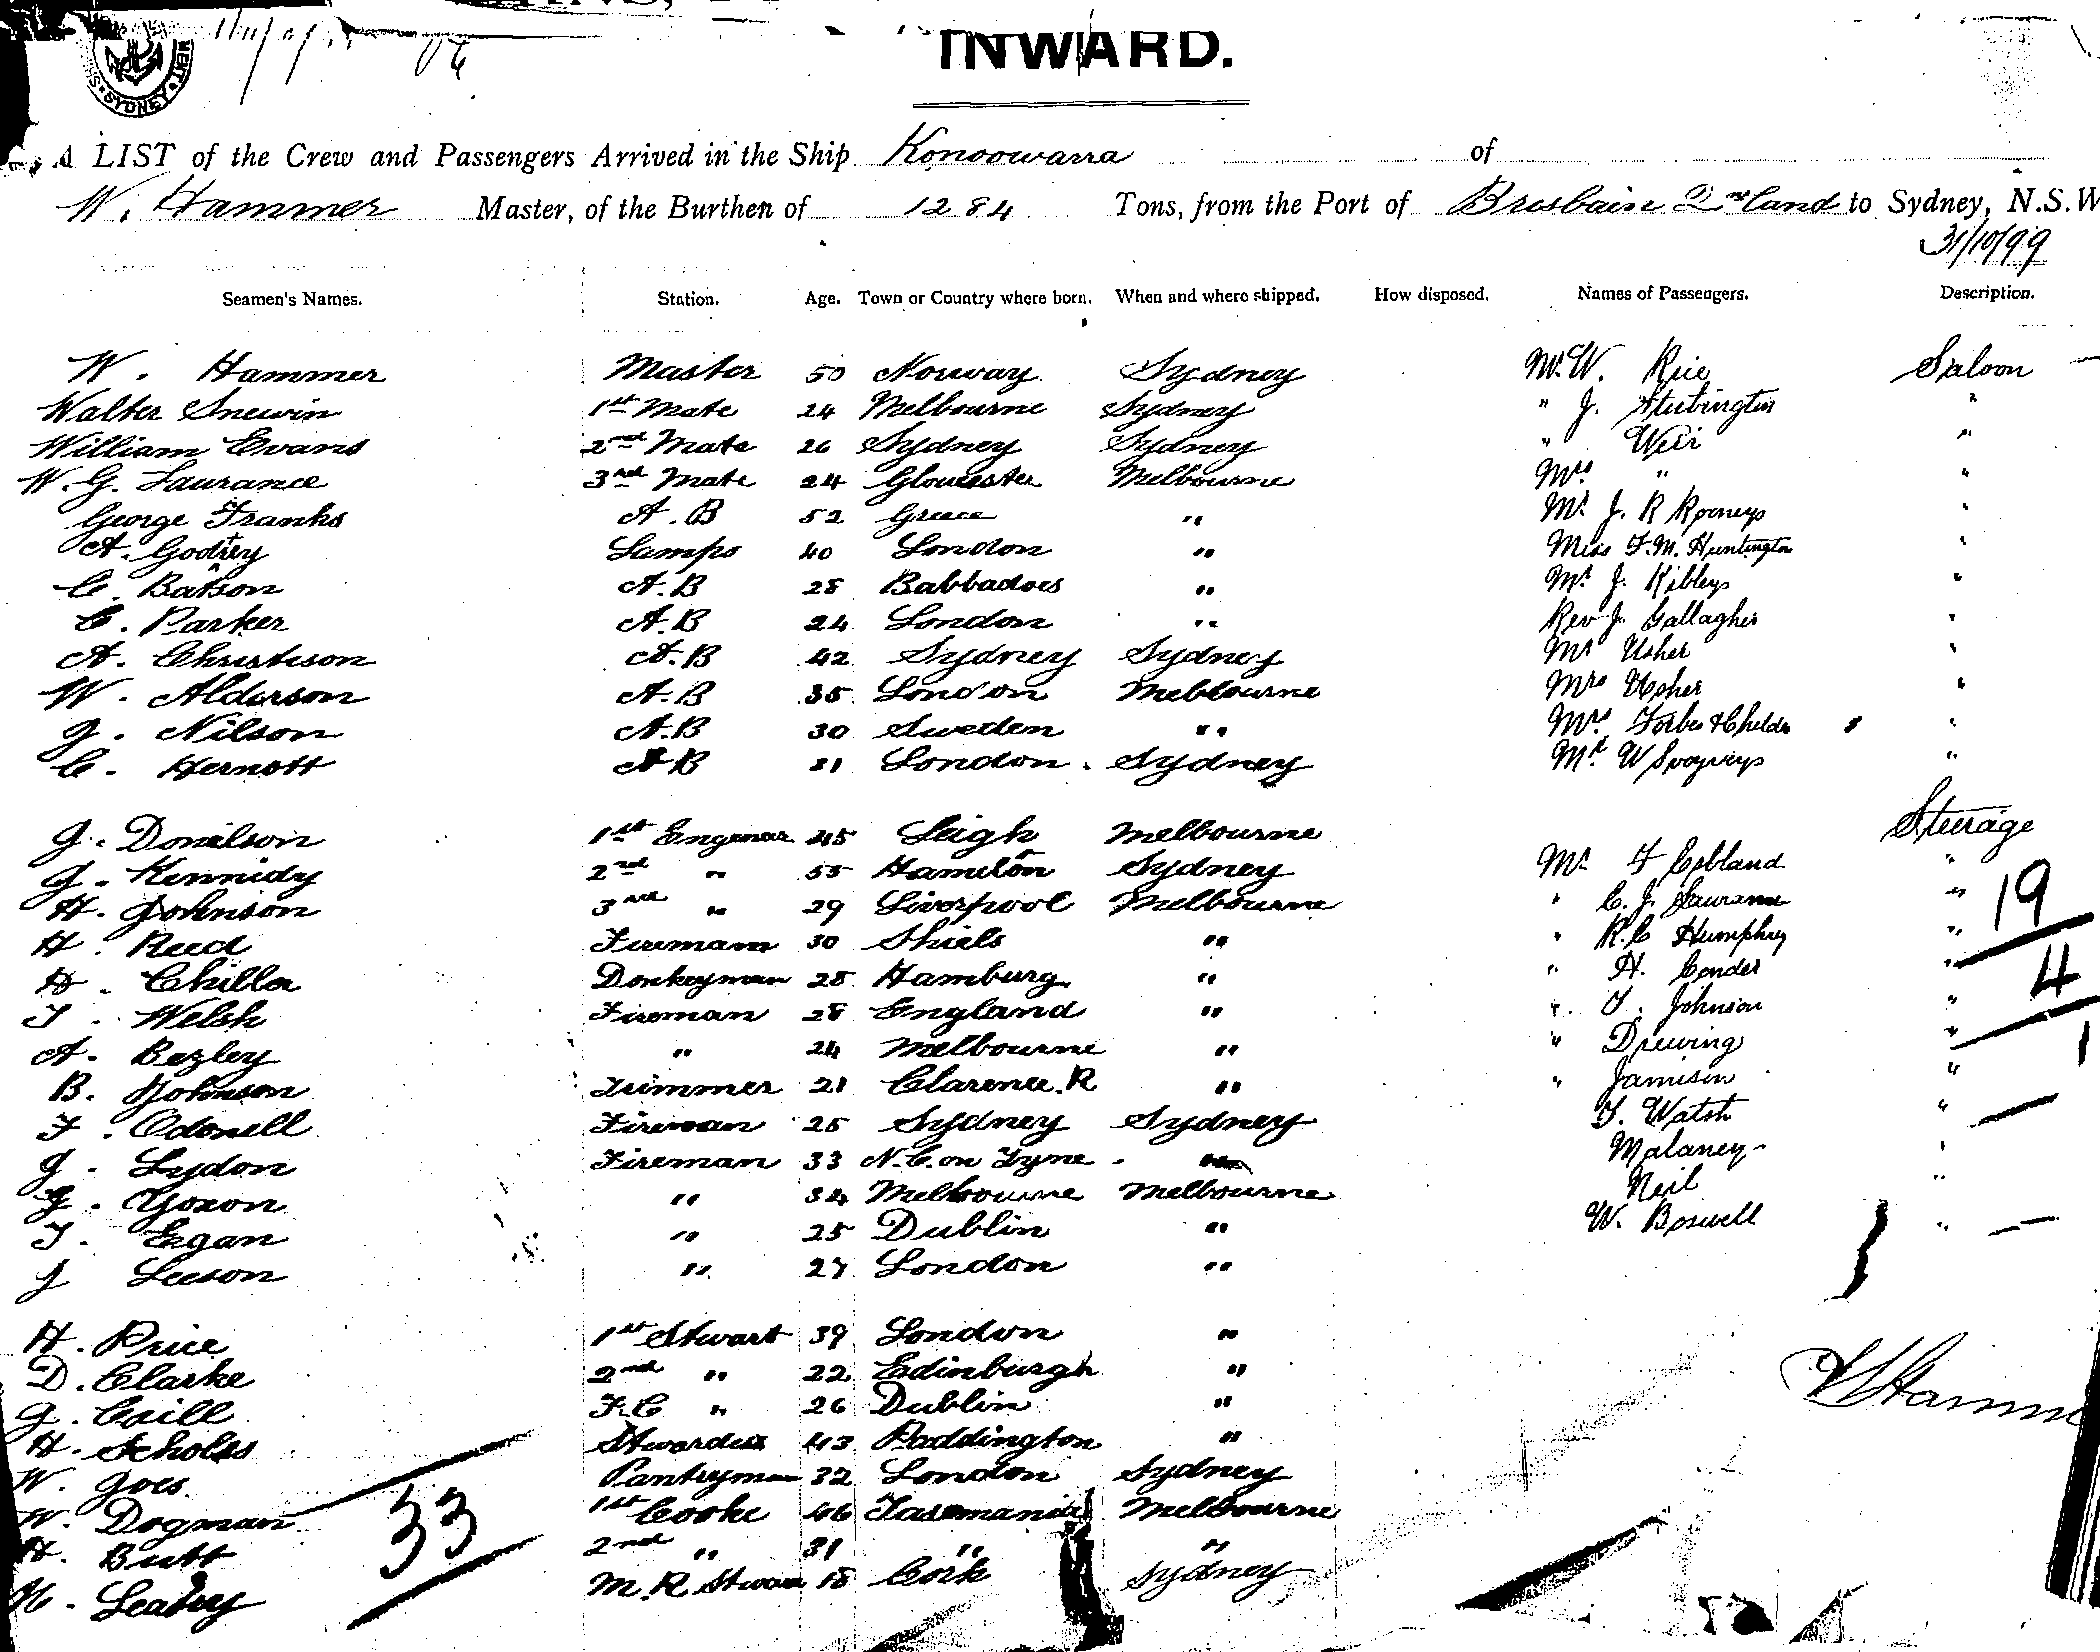 INWARD.
A LIST of the Crew and Passengers Arrived in the Ship Konoowarra of
W. Hammer Master, of the Burthen of 1284 Tons, from the Port of Brisbaine Q nsland to Sydney, N.S.W
31/10/99
Seamen's Names. Station. Age. Town or Country where born. When and where shipped. How disposed. Names of Passengers. Description.
W. Hammer Master 50 Norway Sydney Mr. W. Rice Saloon
Walter Snewin 1st Mate 24 Melbourne Sydney " J. Stubington "
William Evans 2nd Mate 26 Sydney Sydney " Weir "
W. G. Laurance 3rd Mate 24 Gloucester Melbourne Mrs " "
George Franks A.B 52 Greece " Mr J. R Rooneys "
A. Godfrey Lamps 40 London " Miss F. M. Huntington "
C. Batson A.B 28 Babbadoes " Mr J. Kibleys "
C. Parker A.B 24 London " Rev J. Gallagher "
A. Christison A.B 42 Sydney Sydney Mr Usher "
W. Alderson A.B 35 London Melbourne Mrs Usher "
J. Nilson A.B 30 Sweden " Mrs Forbes & Childn "
C. Hernott A B 31 London. Sydney Mr W "
Steerage
J. Donilson 1st Engenear 45 Leigh Melbourne
J. Kennidy 2nd " 55 Hamelton Sydney Mr F Cobland "
H. Johnson 3rd " 29 Liverpool Melbourne " C. J. Laurance " 19
H. Reed Fireman 30 Shiels " " R. C Humphrey "
H. Chilla Donkeyman 28 Hamburg " " H. Conder " 4
T. Welsh Fireman 28 England " " T. Johnson "
A. Bezley " 24 Melbourne " " Drewing " 1
B. Johnson Trimmer 21 Clarence. R " " Jamison "
F. Odonell Fireman 25 Sydney Sydney T. Watsh "
J. Lydon Fireman 33 N. C. on Tyne Malaney "
J. Yoxon " 34 Melbourne Melbourne Neil "
T. Egan " 25 Dublin " W. Boswell "
J Leeson " 27 London "
H. Price 1st Stwart 39 London "
D. Clarke 2nd " 22 Edinburgh "
J. Caill F.C " 26 Dublin "
H. Scholes Stwardess 43 Paddington "
W. Goes Pantryman 32 London Sydney
W. Dogman 1st Cooke 46 Tasmania Melbourne
H. Butt 2nd " 31 " "
H. Leahy M. R Stwar 18 Cork Sydney
33